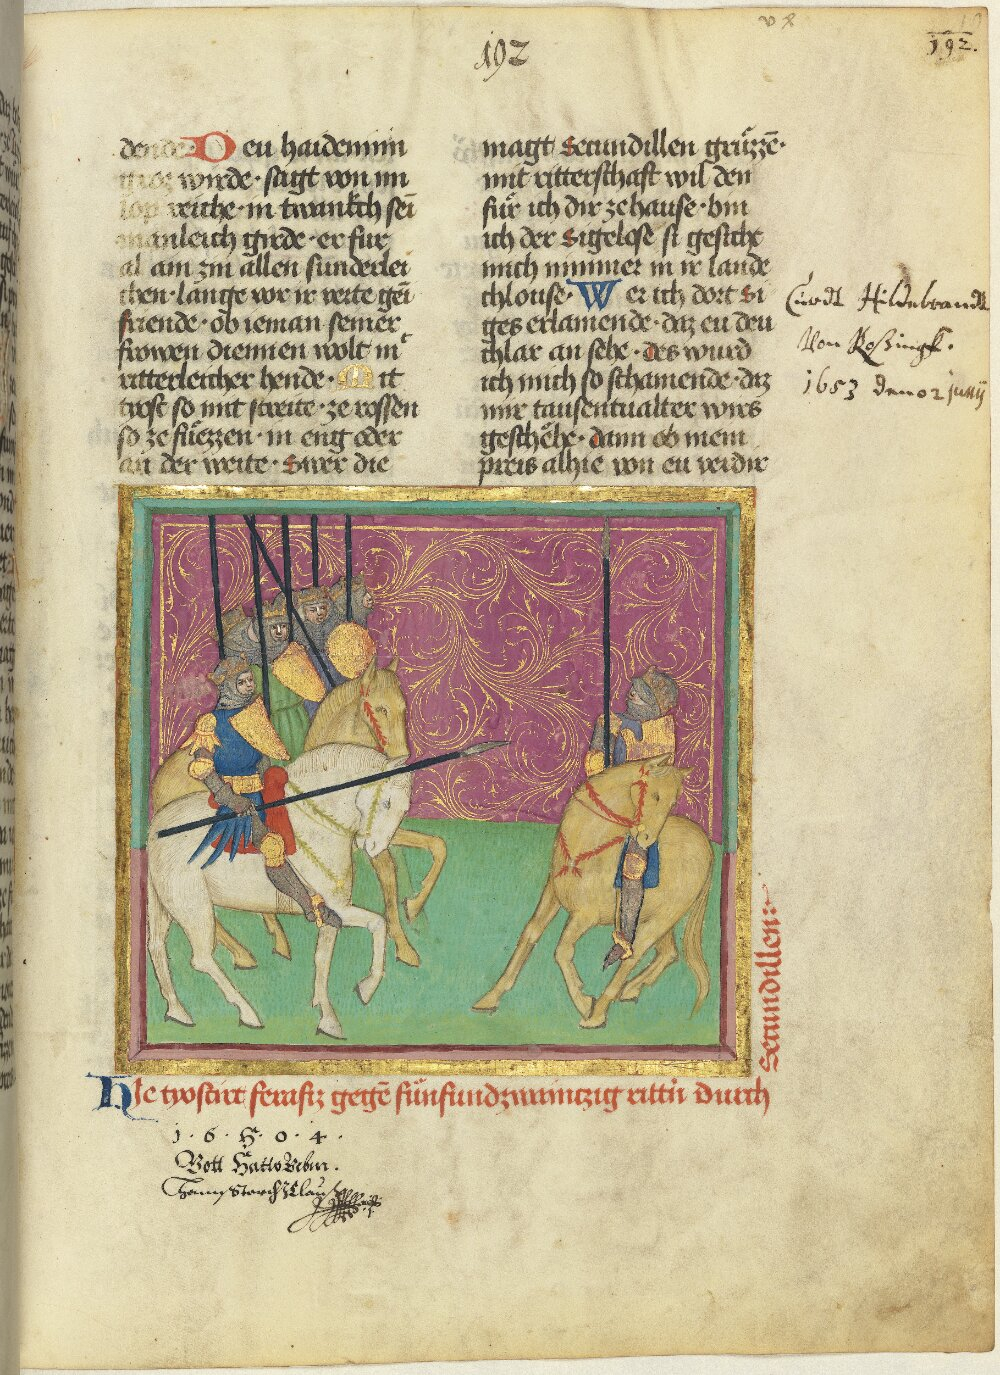 192
192.
dende· Deu haidennin
groz wirde· sagt von im
lop reiche· in twanch sei
manleich girde· er fur
al am zin allen sunderlei
chen· lange vor ir verte gei
friende· ob ieman seiner
frowen diennen wolt mͨ
ritterleicher hende· Mit
trost so mit streite· ze rossen
so ze fuͤezzen· in eng oder
an der weite· Swer die
magt Secundillen gruͤzzē·
mit ritterschaft wil den
fuͤr ich dir ze hause· bin
ich der Sigelose si gesicht
mich nimmer in ir lande
chlouse· Wer ich dort Si
ges erlamende· daz eu deu
chlar an sehe· des wurd
ich mich so schamende· daz
mir tausentualter wirs
geschehe· dann ob mein
preis alhie von eu verdir
Curdt Hildebrandt
Von Roßingk.
1653 den 02 junij
Secundillen:
Hie tyostirt ferafiz gegē fuͤnfundzwaintzig rittn durch
1·6·H·0·4·
Gott